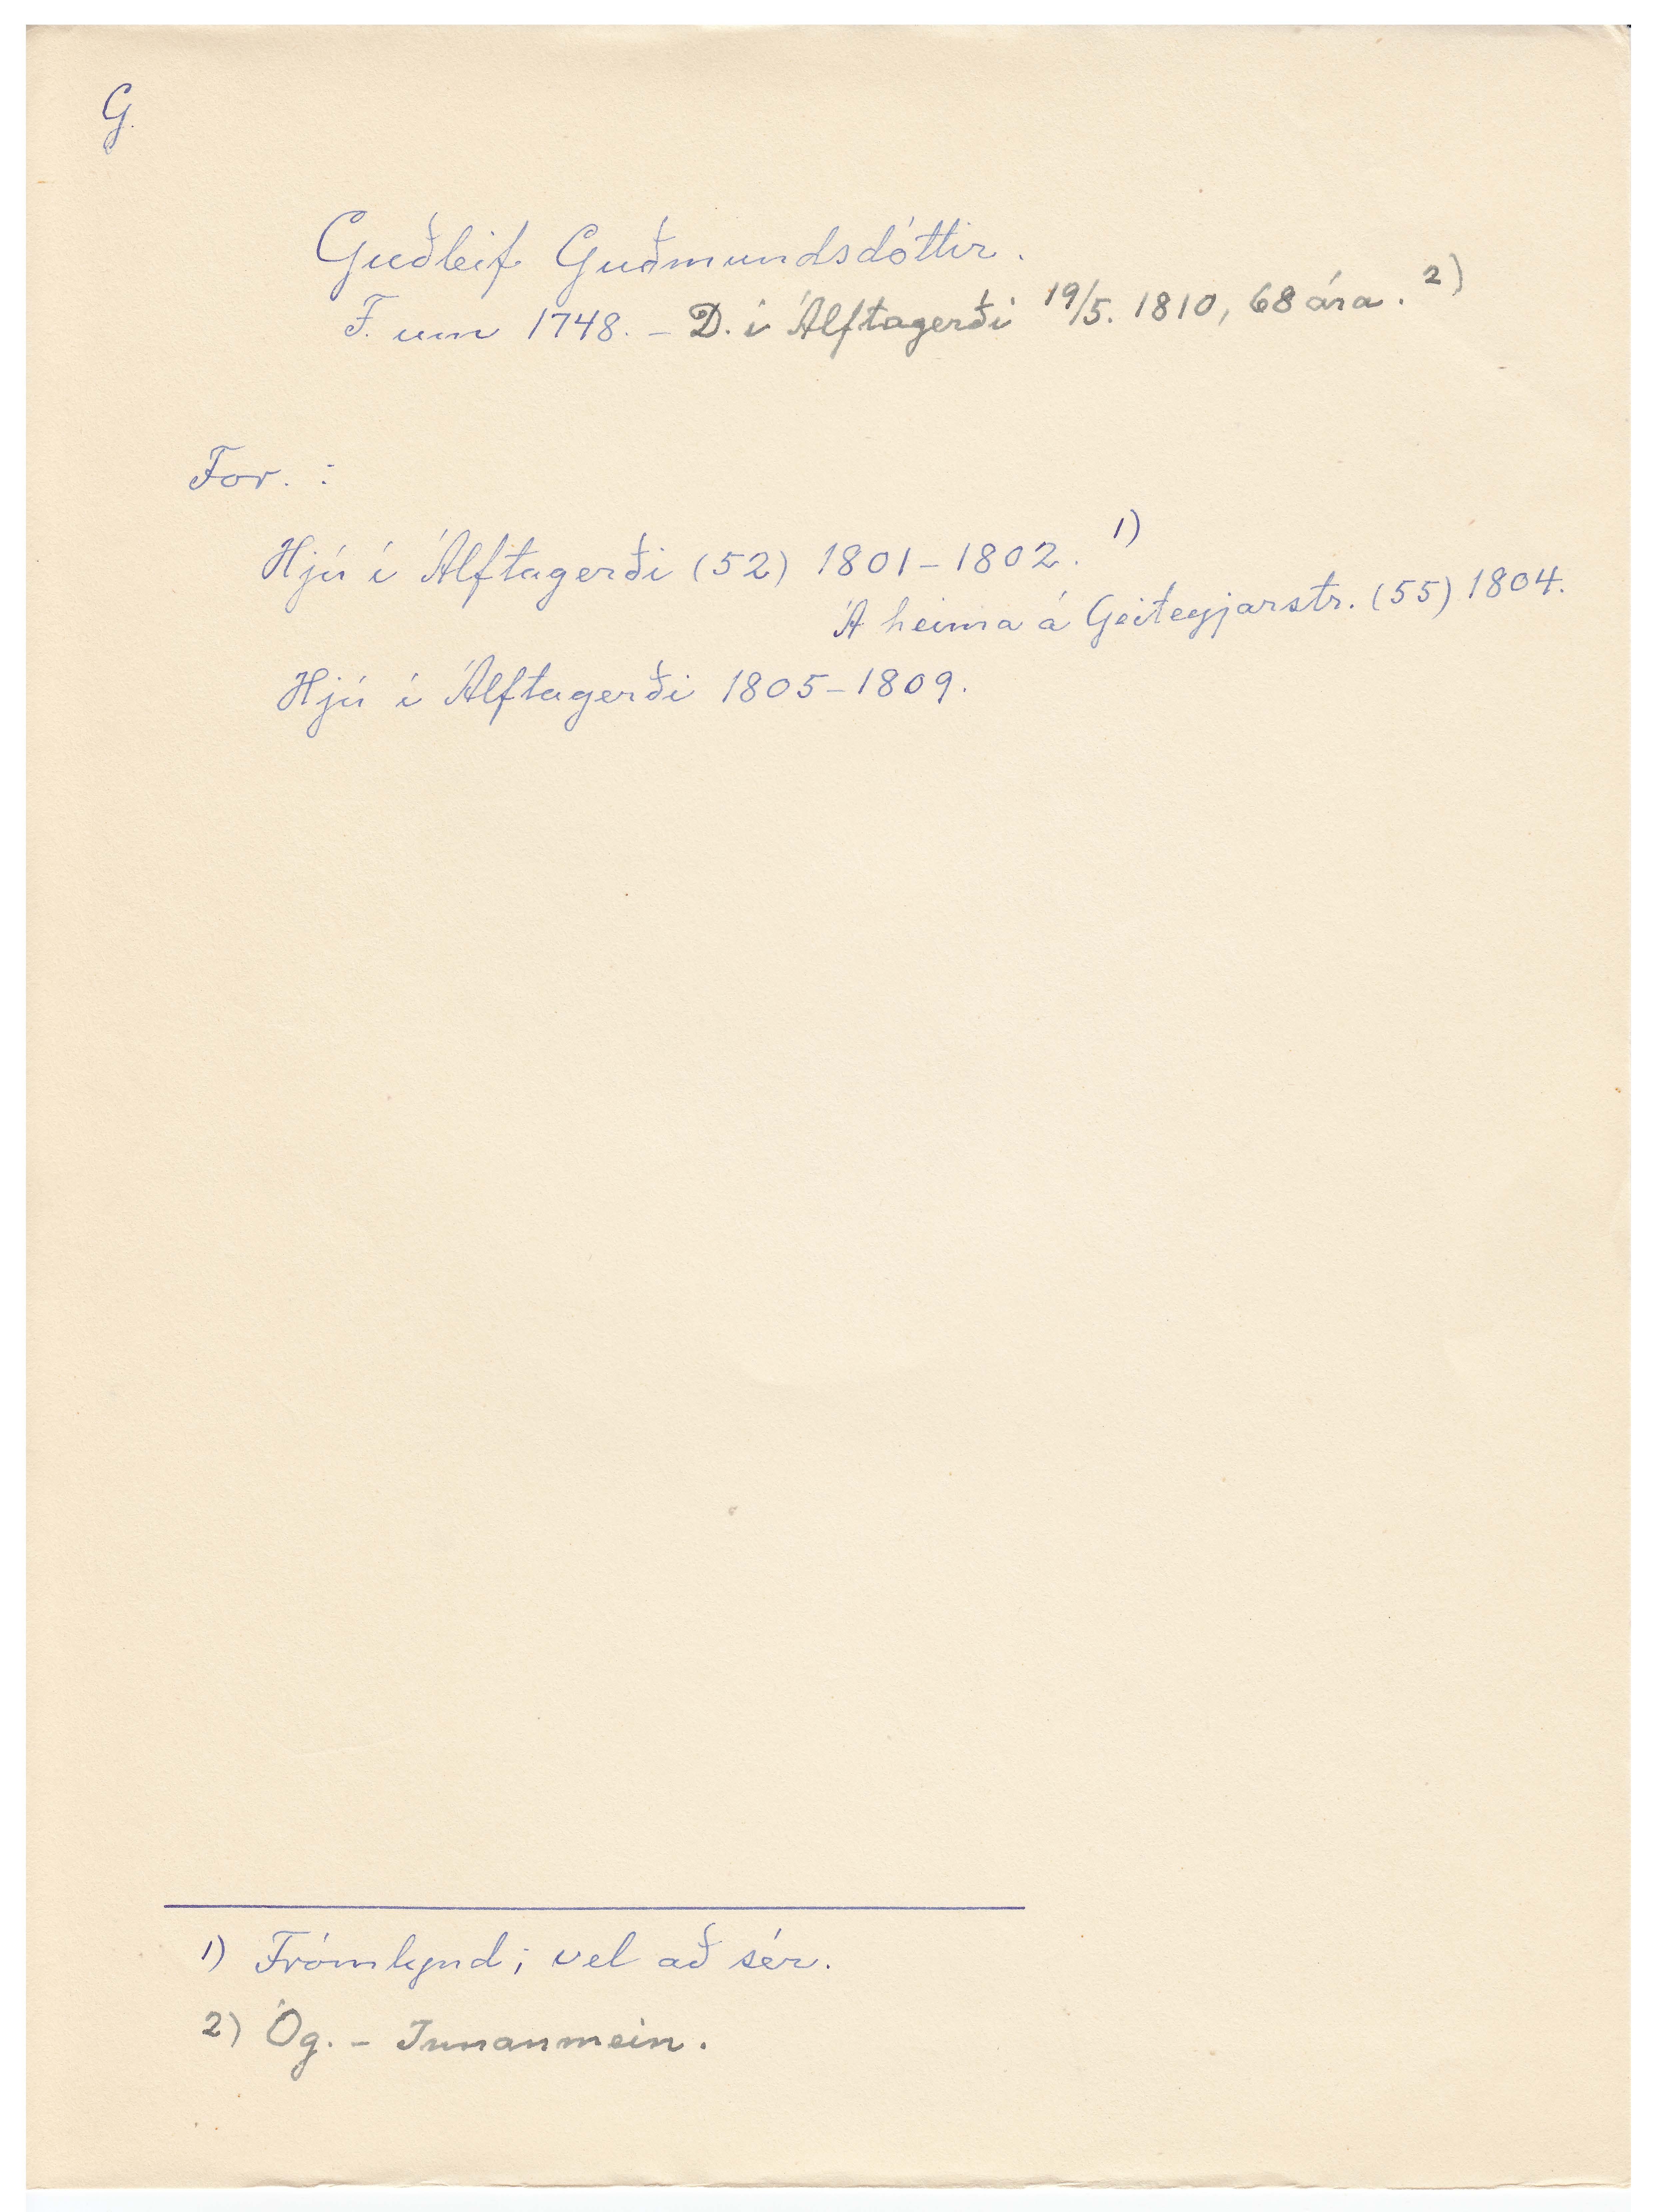 G.
Guðleif Guðmundsdóttir.
F. um 1748. – D. í Álftagerði 19/5. 1810, 68 ára. 2)
For. :
Hjú í Álftagerði (52) 1801–1802. 1)
Á heima á Geiteyjarstr. (55) 1804.
Hjú í Álftagerði 1805–1809.
1) Frómlynd; vel að sér.
2) Óg. – Innanmein.